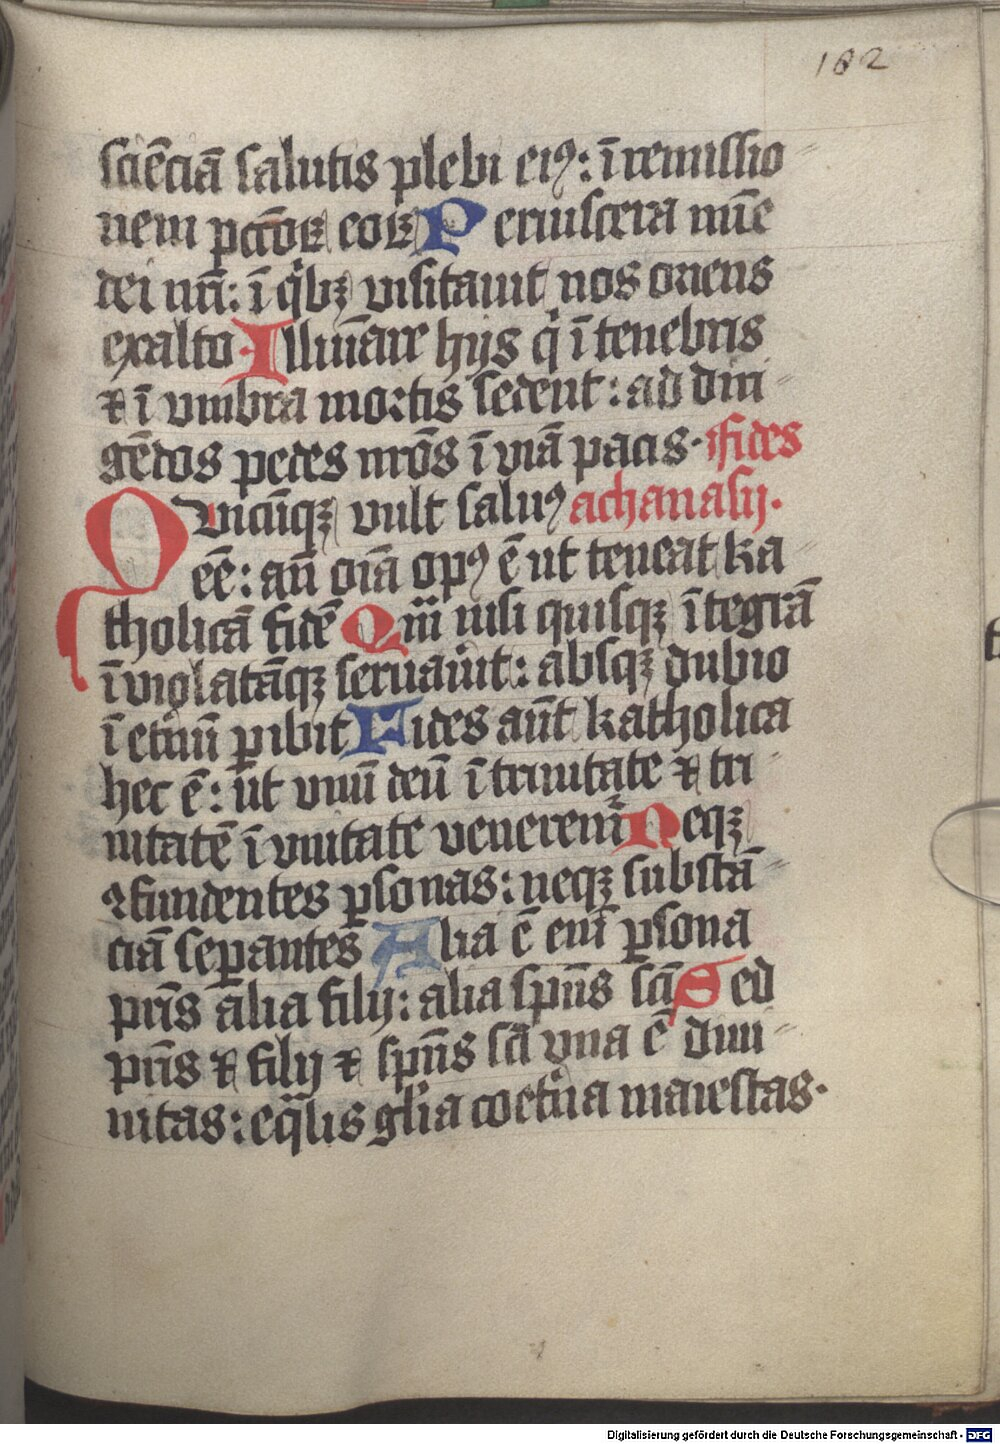 182
sciēciā salutis plebi eiꝰ: ī remissio
nem pctō⁊ꝝ eoꝝ Per viscera mīe
dei nr̄i: ī qͥbꝫ visitauit nos oriens
exalto Illuīare hijs qͥ ī tenebris
⁊ ī vmbra mortis sedent: ad diri
gēdos pedes nr̄os ī viā pacis. fides
Quicūqꝫ vult saluꝰ athanasij.
eē: an̄ oīa opꝰ ē ut teneat ka
tholicā fidē Quā nisi quisqꝫ ītegrā
īviolatāqꝫ seruauͥit: absqꝫ dubio
ī etͥnū ꝑibit Fides aūt katholica
hec ē: ut vnū deū ī trinitate ⁊ tri
nitatē ī vnitate veneremᷣ Neqꝫ
ꝯfundentes ꝑsonas: neqꝫ substā
ciā seꝑantes Alia ē enī ꝑsona
pr̄is alia filij: alia spūs scī Sed
pr̄is ⁊ filij ⁊ spūs scī vna ē diui
nitas: eqͣlis glīa coetͥna maiestas.
Digitalisierung gefördert durch die Deutsche Forschungsgemeinschaft - DFG